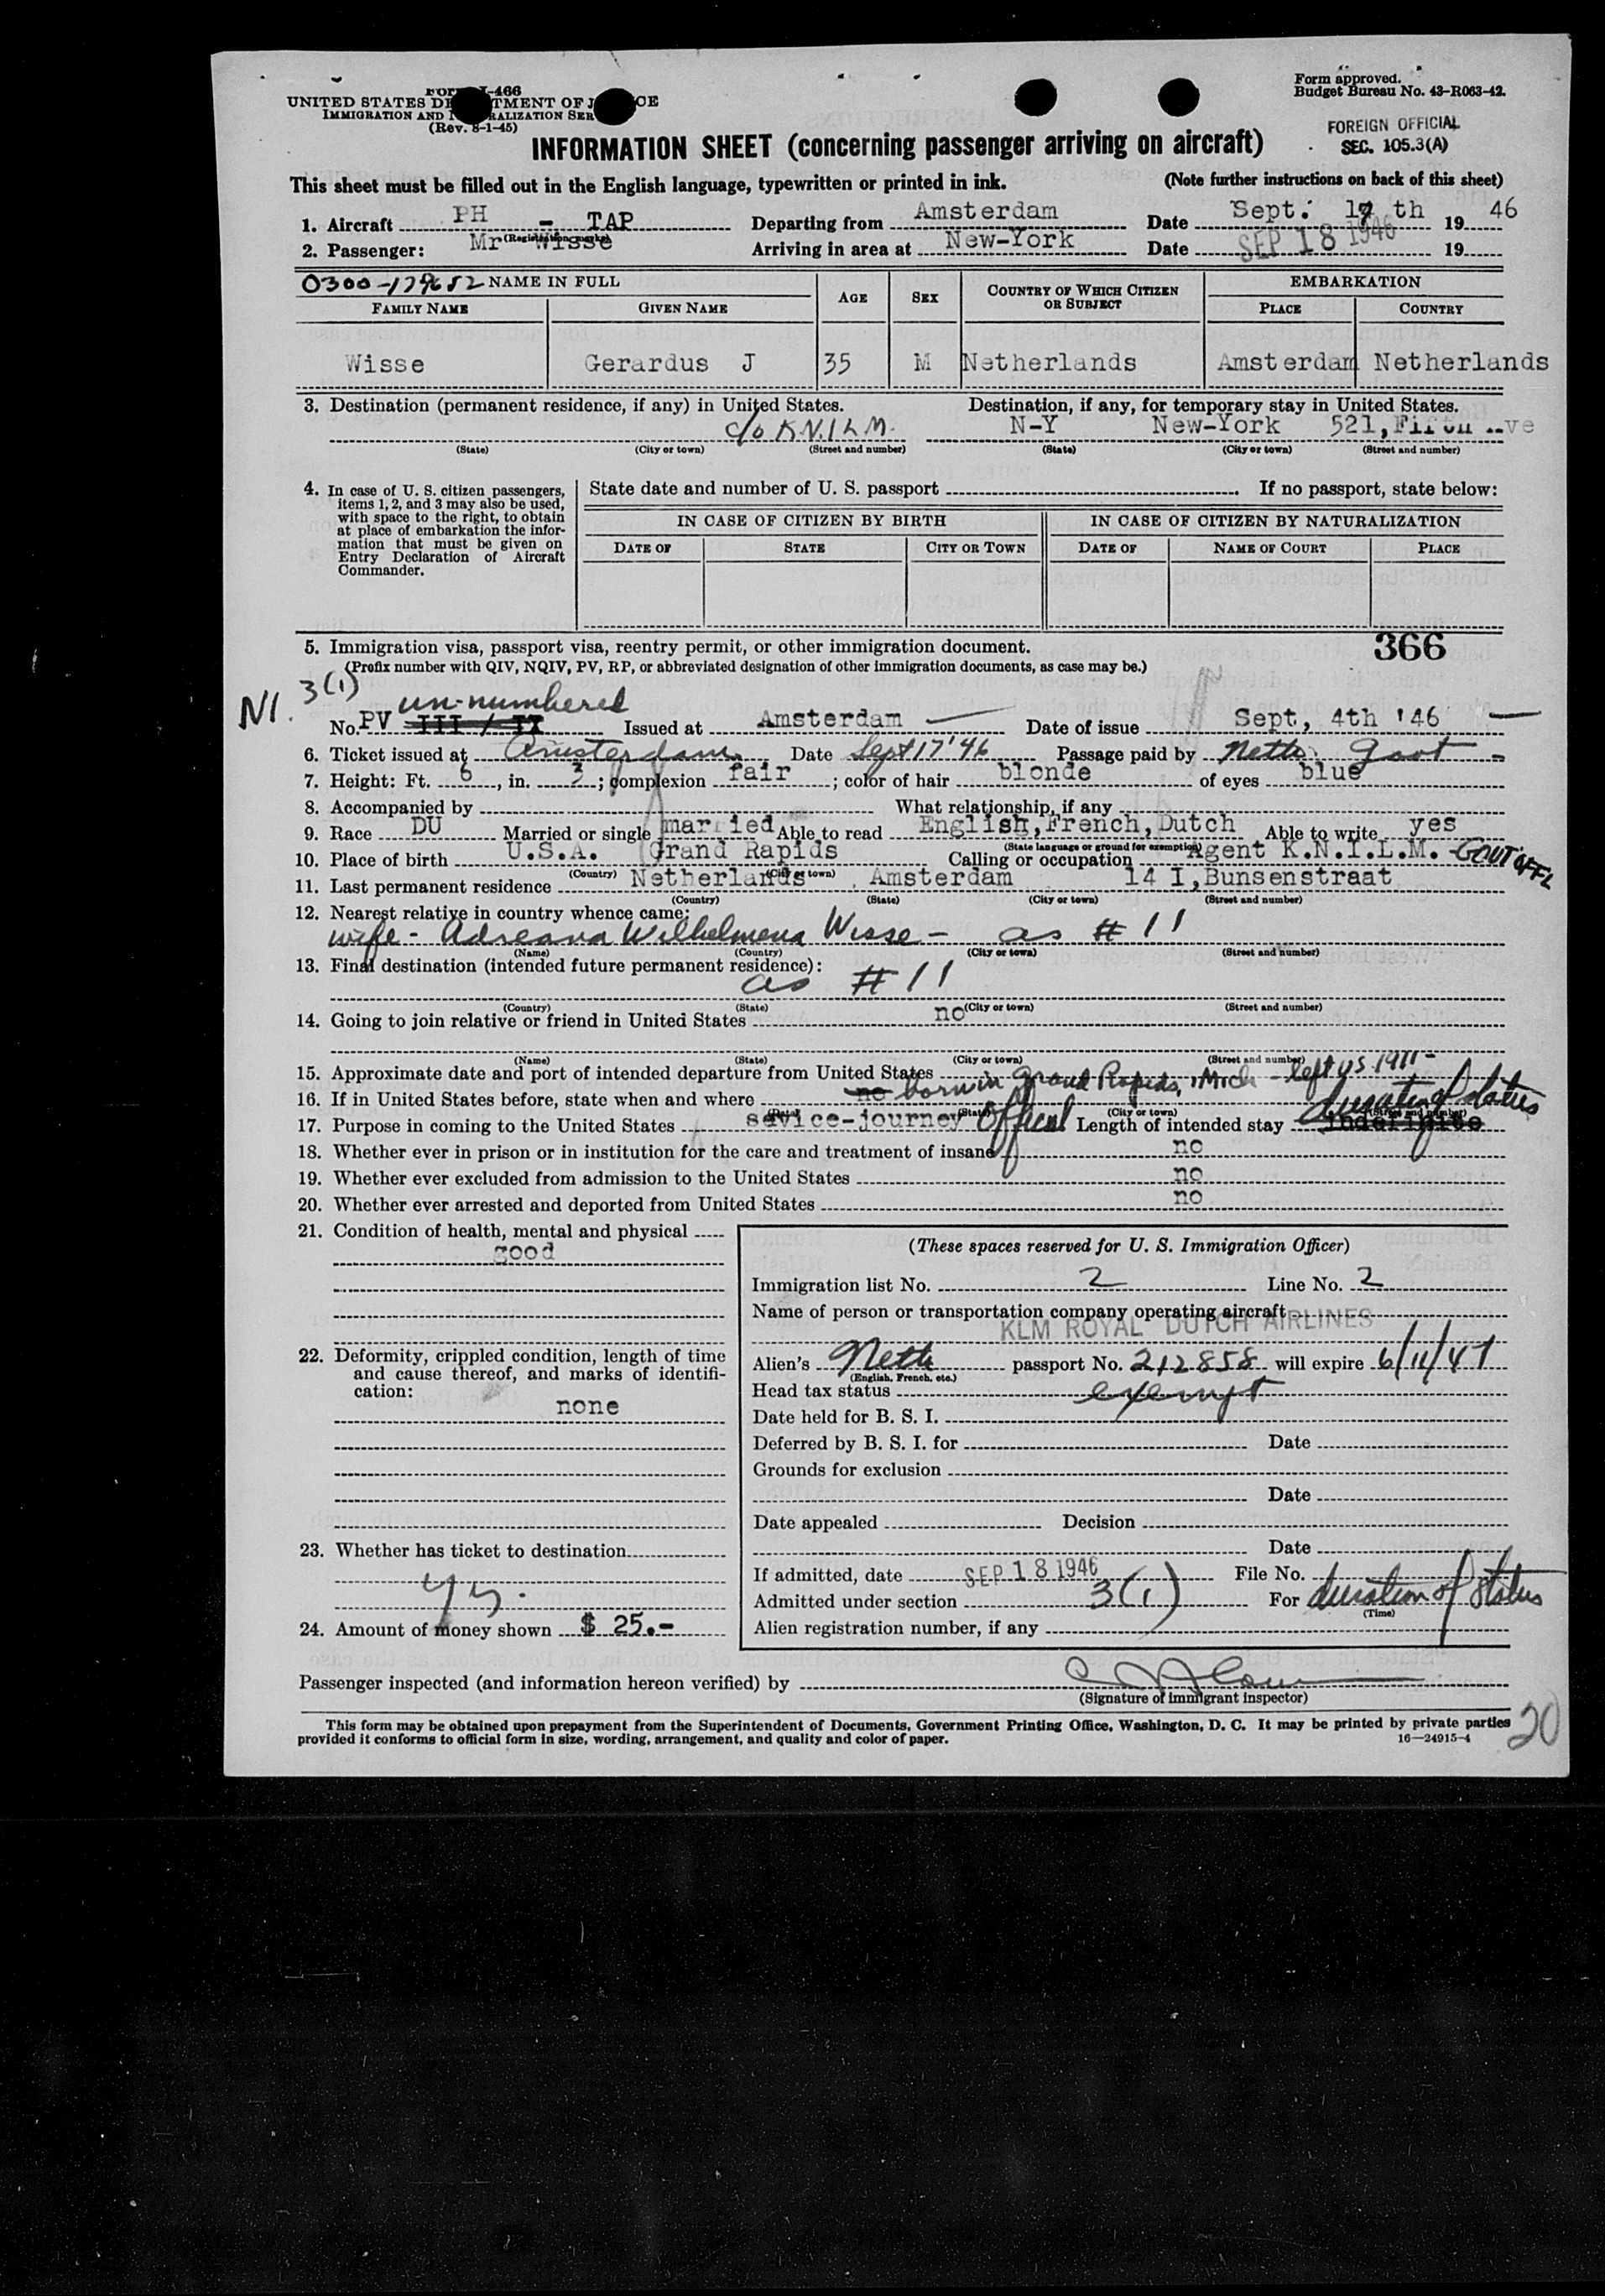 Form approved.
Budget Bureau No. 43-R063-42.
I-466
UNITED STATES
IMMIGRATION AND
(Rev. 8-1-45)
FOREIGN OFFICIAL
SEC. 105.3(A)
INFORMATION SHEET (concerning passenger arriving on aircraft)
This sheet must be filled out in the English language, typewritten or printed in ink. (Note further instructions on back of this sheet)
1. Aircraft PH - TAP Departing from Amsterdam Date Sept. 17 th 1946
(Registration marks)
2. Passenger: Mr Wisse Arriving in area at New-York Date SEP 18 1946 19
NAME IN FULL AGE SEX COUNTRY OF WHICH CITIZEN OR SUBJECT EMBARKATION
FAMILY NAME GIVEN NAME PLACE COUNTRY
Wisse Gerardus J 35 M Netherlands Amsterdam Netherlands
3. Destination (permanent residence, if any) in United States. Destination, if any, for temporary stay in United States.
c/o K.N.I.L.M. N-Y New-York 521, Fifth Ave
(State) (City or town) (Street and number) (State) (City or town) (Street and number)
4. In case of U. S. citizen passengers, items 1, 2, and 3 may also be used, with space to the right, to obtain at place of embarkation the information that must be given on Entry Declaration of Aircraft Commander.
State date and number of U. S. passport If no passport, state below:
IN CASE OF CITIZEN BY BIRTH IN CASE OF CITIZEN BY NATURALIZATION
DATE OF STATE CITY OR TOWN DATE OF NAME OF COURT PLACE
5. Immigration visa, passport visa, reentry permit, or other immigration document. 366
(Prefix number with QIV, NQIV, PV, RP, or abbreviated designation of other immigration documents, as case may be.)
NI. 3(1) un-numbered
No. PV III / II Issued at Amsterdam Date of issue Sept, 4th '46
6. Ticket issued at Amsterdam Date Sept 17 '46 Passage paid by Neth Govt
7. Height: Ft. 6, in. 3; complexion fair; color of hair blonde of eyes blue
8. Accompanied by What relationship, if any
9. Race DU Married or single married Able to read English, French, Dutch Able to write yes
(State language or ground for exemption)
10. Place of birth U.S.A. Grand Rapids Calling or occupation Agent K.N.I.L.M. - GOVT OFFL
(Country) (City or town)
11. Last permanent residence Netherlands Amsterdam 14 I, Bunsenstraat
(Country) (State) (City or town) (Street and number)
12. Nearest relative in country whence came:
wife - Adreana Wilhelmena Wisse - as # 11
(Name) (Country) (City or town) (Street and number)
13. Final destination (intended future permanent residence):
as # 11
(Country) (State) (City or town) (Street and number)
14. Going to join relative or friend in United States no
(Name) (State) (City or town) (Street and number)
15. Approximate date and port of intended departure from United States
16. If in United States before, state when and where no born in Grand Rapids, Mich - left US 1911 -
(Date) (State) (City or town) (Street and number)
17. Purpose in coming to the United States service-journey Official Length of intended stay indefinite duration of status
18. Whether ever in prison or in institution for the care and treatment of insane no
19. Whether ever excluded from admission to the United States no
20. Whether ever arrested and deported from United States no
21. Condition of health, mental and physical
good
22. Deformity, crippled condition, length of time and cause thereof, and marks of identification:
none
23. Whether has ticket to destination
yes.
24. Amount of money shown $ 25.-
(These spaces reserved for U. S. Immigration Officer)
Immigration list No. 2 Line No. 2
Name of person or transportation company operating aircraft
KLM ROYAL DUTCH AIRLINES
Alien's Neth passport No. 212858 will expire 6/11/47
(English, French, etc.)
Head tax status exempt
Date held for B. S. I.
Deferred by B. S. I. for Date
Grounds for exclusion
Date
Date appealed Decision
Date
If admitted, date SEP 18 1946 File No.
Admitted under section 3(1) For duration of status
(Time)
Alien registration number, if any
Passenger inspected (and information hereon verified) by
(Signature of immigrant inspector)
This form may be obtained upon prepayment from the Superintendent of Documents, Government Printing Office, Washington, D. C. It may be printed by private parties
provided it conforms to official form in size, wording, arrangement, and quality and color of paper. 16—24915-4
20